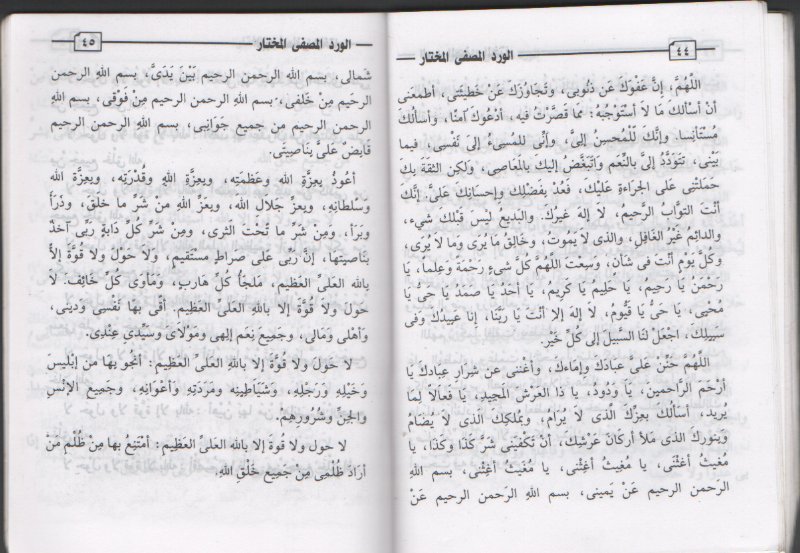 ٤٤
الورد المصفى المختار
اللَّهُمَّ، إنَّ عَفْوَكَ عَنْ ذُنُوبى، وتَجَاوُزَكَ عَنْ خَطِيئَتى، أطمعَنى
أنْ أسْأَلَكَ مَا لاَ أسْتَوْجِبُهُ: ممَّا قَصَّرْتُ فيه، أدْعُوكَ آمنًا، وأسْألُكَ
مُسْتَأنِسا. وإنَّكَ للْمُحْسنُ إلىَّ، وأنِّى للْمُسِىءُ إلى نَفْسى، فيما
بيْنى، تَتَوَدَّدُ إلىَّ بالنِّعَم وأتَبَغَّضُ إليكَ بالْمَعَاصِى، ولَكِن الثقَةُ بِكَ
حَمَلَتْنِى على الجَراءةِ عَلَيْكَ، فَعُدْ بفَضْلِكَ وإحسَانِكَ عَلىَّ. إنَّكَ
أنْتَ التوَّابُ الرَّحيِمُ، لا إلَهَ غَيرُكَ. والبَديعُ لَيْسَ قَبْلَكَ شيء،
والدائِمُ غَيْرُ الغَافِلِ، والذى لاَ يَمُوتُ، وخَالِقُ مَا يُرَى ومَا لا يُرَى،
وكُلَّ يَوْمٍ أنْتَ فى شأن، وَسِعْتَ اللَّهُمَّ كُلَّ شىءٍ رَحْمَةً وعِلماً، يَا
رَحْمَنُ يَا رَحيِمُ، يَا حَلِيمُ يَا كَرِيمُ، يَا أحَدُ يَا صَمَدُ يَا حىُّ يَا
مُحْيى، يَا حَىُّ يَا قَيُّومُ، لا إلَهَ إلا أنْتَ يَا رَبَّنَا، إنا عَبيدُكَ وفى
سَبِيلِكَ، اجْعَلْ لَنَا السَّبِيلَ إلى كُلِّ خَيْر.
اللَّهُمَّ حَنِّنْ عَلىَّ عِبَادَكَ وإمَاءَكَ، وأغْنِنى عن شرارِ عِبادِكَ يَا
أرْحَمَ الرَّاحمِينَ، يَا وَدُودُ، يَا ذَا العَرْشِ المَجِيدِ، يَا فَعَّالاً لِمَا
يُريد، أسَألُكَ بِعزِّكَ الَّذى لا يُرَامُ، وبمُلْكِكَ الَّذى لا يُضَامُ
وبَنُورِكَ الذى مَلأَ أركَانَ عَرْشِكَ، أنْ تَكْفِيَنِى شَرَّ كَذَا وكَذَا، يَا
مُغِيثُ أغثْنى، يَا مُغِيثُ أغِثْنى، يا مُغيثُ أغِثْنى، بسم الله
الرَحمن الرحيم عَنْ يَمِينى، بسم اللهِ الرَحمن الرحيم عَنْ
٤٥
الورد المصفى المختار
شِمالى، بسم اللهِ الرحمن الرحيم بَيْنَ يَدَىَّ، بسم اللهِ الرحمن
الرحيم مِنْ خَلفى، بسم اللهِ الرحمن الرحيم مِنْ فَوْقى، بسم اللهِ
الرحمن الرحيم من جميع جَوانِبى، بسم الله الرحمن الرحيم
قَابِضٌ عَلَىَّ بنَاصِيَتى.
أعُوذُ بعِزَّةِ اللهِ وعَظَمَتِه، وبعِزةِ اللهِ وقُدْرَتِه، وبعِزَّةِ اللهِ
وَسُلطانِه، وبعزِّ جَلال الله، وبعِزِّ اللهِ مِنْ شَرِّ ما خلقَ، وذَرأ
وبَرَأ. ومِنْ شَرِّ ما تَحْتَ الثرى، ومِنْ شَرِّ كُلِّ دَابةٍ ربِّى آخذٌ
بنَاصِيتها، إنَّ ربِّى على صراطٍ مستَقيم، ولا حَوْلَ ولا قُوَّةَ إلاَّ
بالله العَلىِّ العَظيم، مَلجَأُ كُلِّ هارِب، ومَأوَى كُلِّ خَائِف. لا
حَوْلَ ولا قُوَّةَ إلا باللهِ العَلىِّ العَظِيم. أقى بَها نَفْسى ودَيْنى،
وَأهْلى ومَالى، وجَميعِ نِعَم إلهى ومَوْلاىَ وسَيِّدى عِنْدِى.
لا حول ولا قوة إلا بالله العَلىِّ العظيم: أنْجُو بهَا من إبْليسَ
وخَيلِهِ ورَجلِهِ، وشَيَاطِينِه ومَرَدَتِهِ وأعْوَانِهِ، وجميع الإنْسِ
والجنِّ وشُرُورِهِم.
لا حول ولا قوةَ إلا بالله العَلىِّ العَظيم: أمْتَنِعُ بهَا مِنْ ظُلْمِ مَنْ
أرَادَ ظُلْمِى مِنْ جَميعِ خَلْقِ اللهِ.